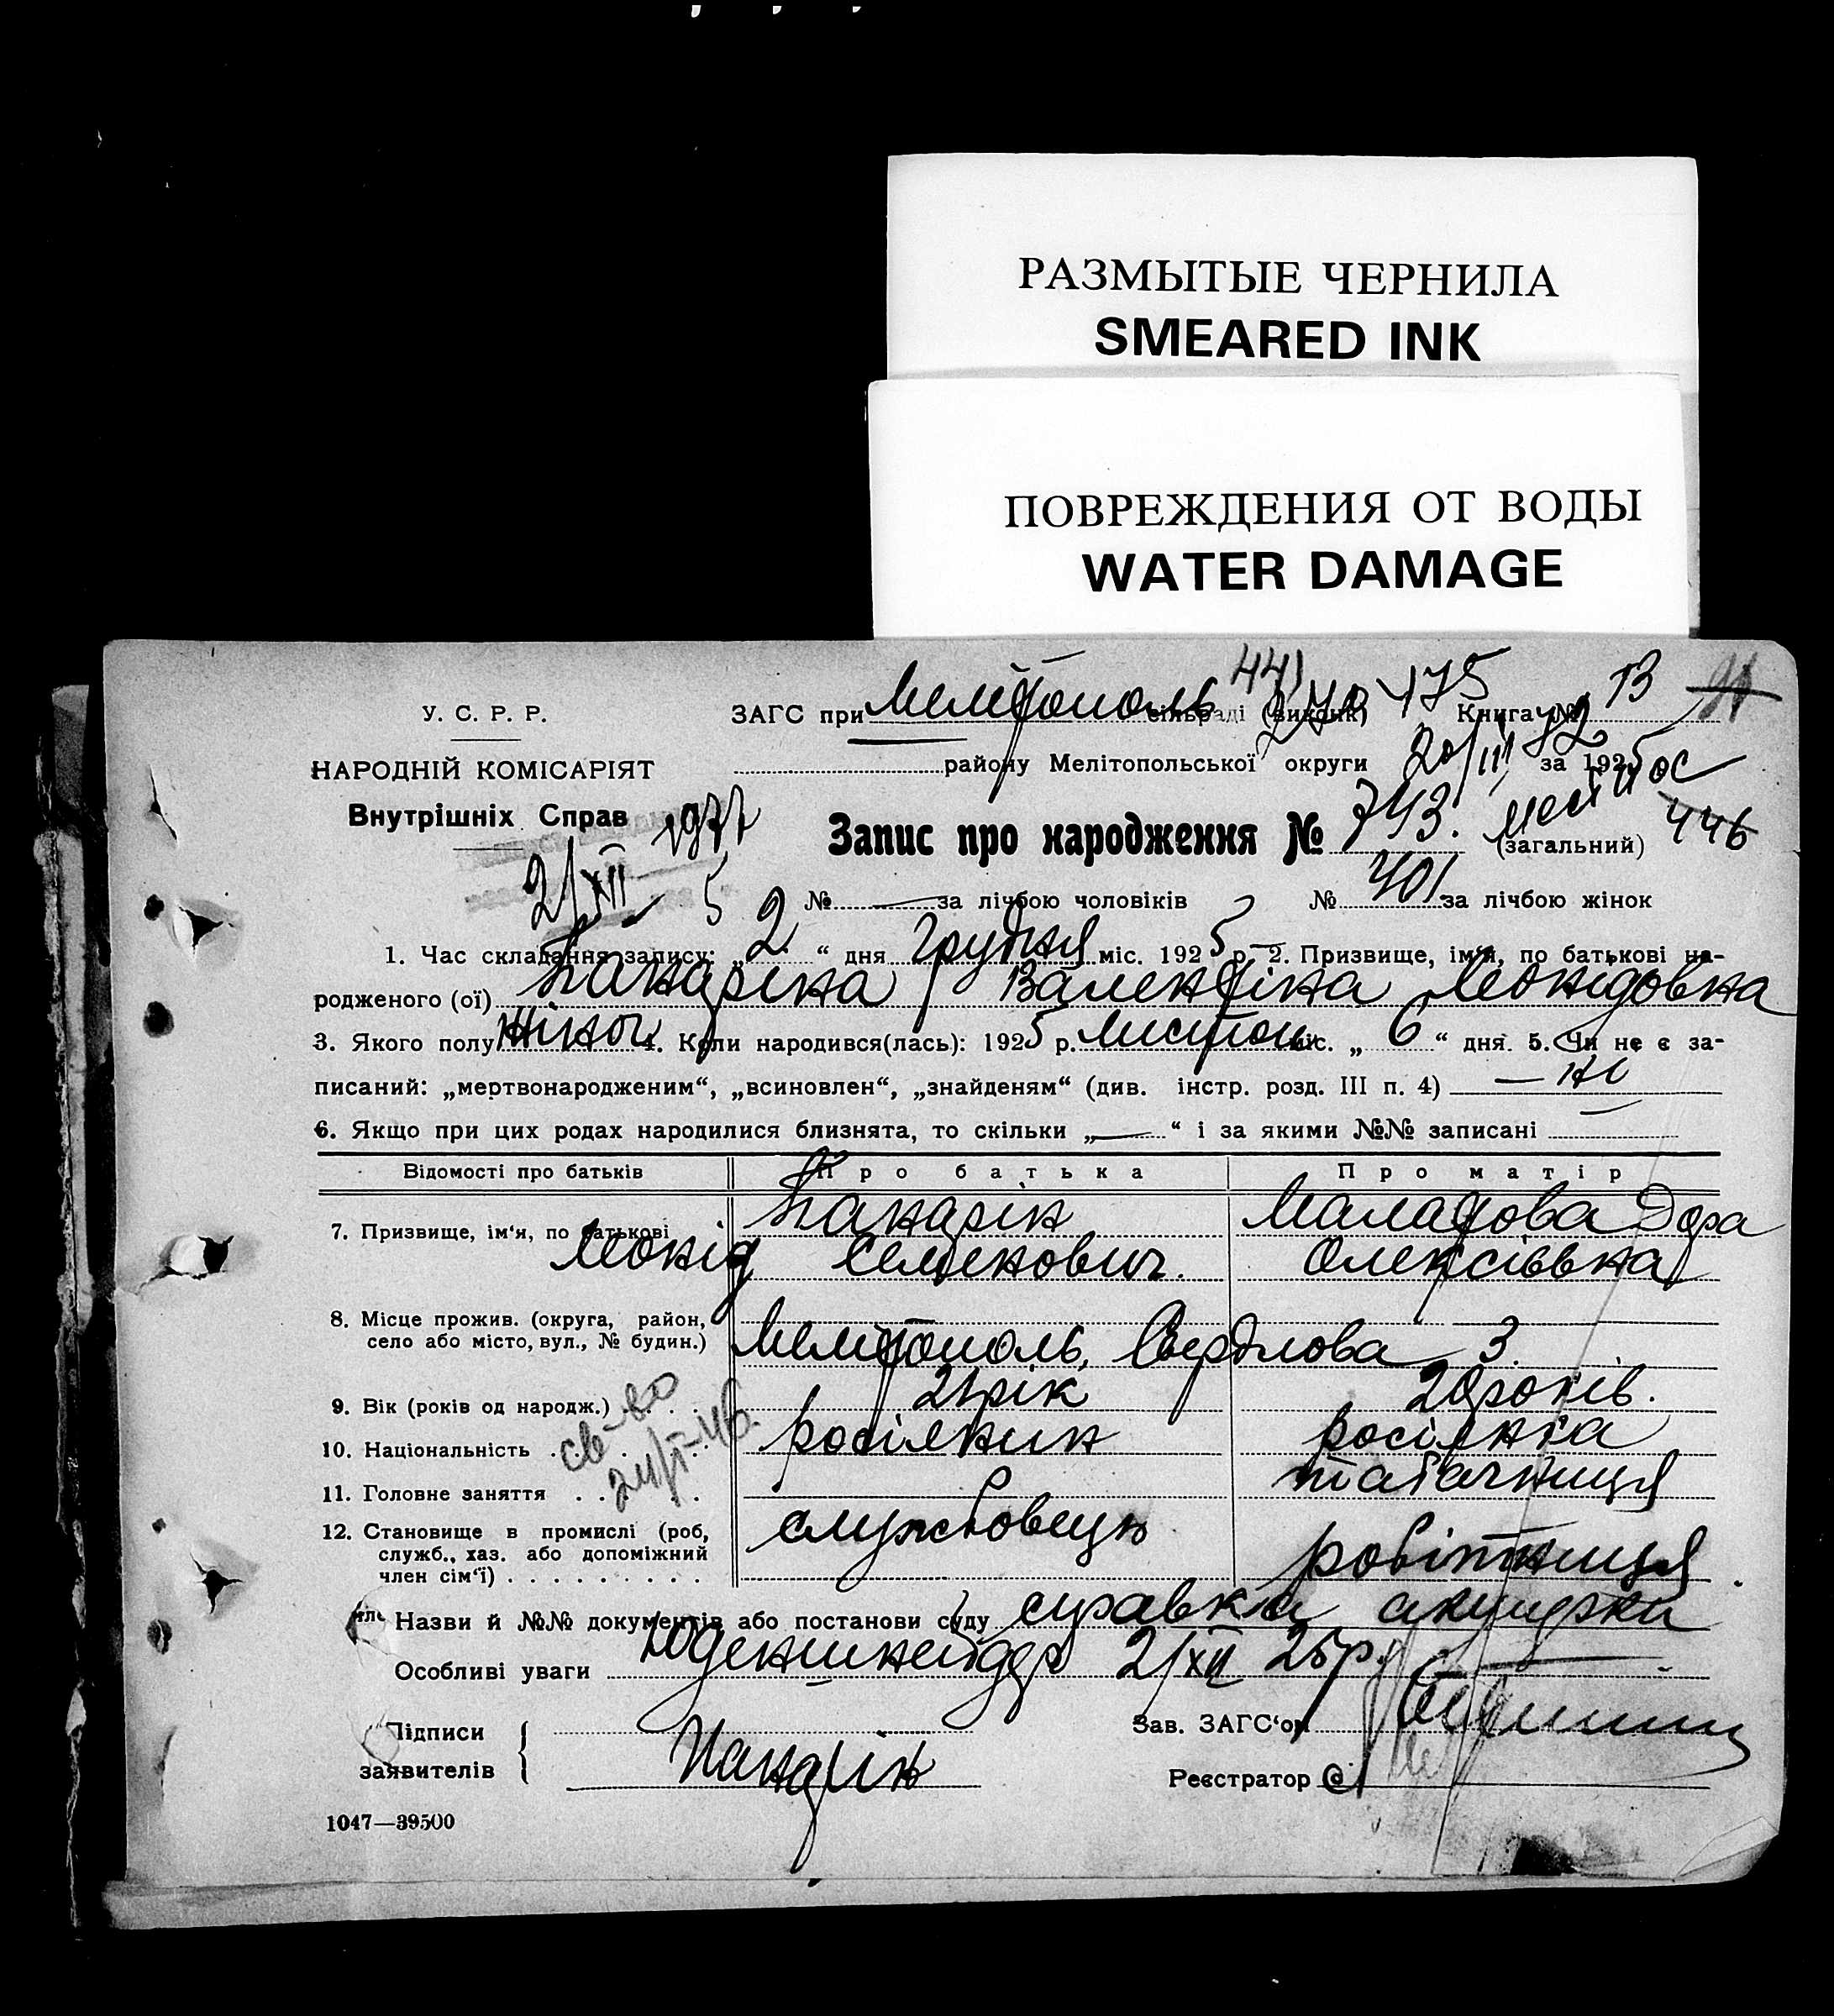 РАЗМЫТЫЕ ЧЕРНИЛА
SMEARED INK
ПОВРЕЖДЕНИЯ ОТ ВОДЫ
WATER DAMAGE
У. С. Р. Р.
НАРОДНІЙ КОМІСАРІЯТ
Внутрішніх Справ
441 475 13
ЗАГС при Мелітополь сільраді (виконк) Книга №
району Мелітопольської округи 20/III 72 за 1925
Запис про народження № 743. (загальний) 446
2/XII 5
№ — за лічбою чоловіків № 401 за лічбою жінок
1. Час складання запису: „ 2 “ дня Грудня міс. 1925 р. 2. Призвище, ім'я, по батькові на-
родженого (ої) Пандріна Валентіна Леонідовна
3. Якого полу Жіноч. 4. Коли народився(лась): 1925 р. Листоп. міс. „ 6 “ дня. 5. Чи не є за-
писаний: „мертвонародженим“, „всиновлен“, „знайденям“ (див. інстр. розд. III п. 4) — ні
6. Якщо при цих родах народилися близнята, то скільки „ — “ і за якими №№ записані —
Відомості про батьків Про батька Про матір
7. Призвище, ім'я, по батькові Пандрін Малатова Дора
Леонід Семенович. Олексіївна
8. Місце прожив. (округа, район,
село або місто, вул., № будин.) Мелітополь, Свердлова 3.
9. Вік (років од народж.) 21 рік 20 років.
св-во
24/VI-46.
10. Національність росіянин росіянка
11. Головне заняття табачниця
12. Становище в промислі (роб,
служб., хаз. або допоміжний
член сім'ї) службовець робітниця
Назви й №№ документів або постанови суду справка акушерки
Особливі уваги Юденшнейдер 2/XII 25р.
Підписи
заявителів Пандрін
Зав. ЗАГС'ом
Реєстратор
1047—39500